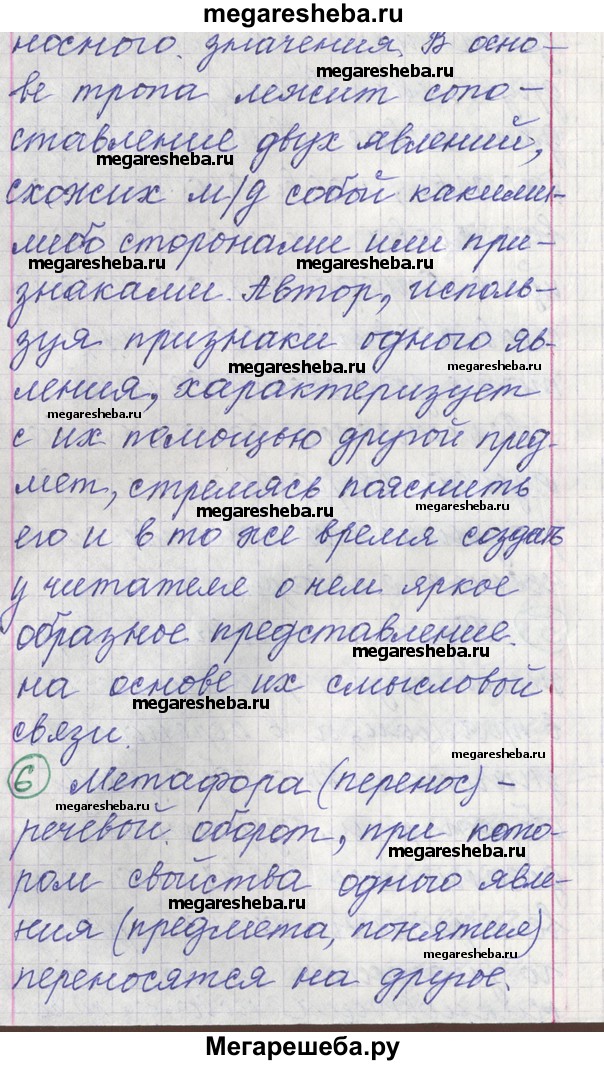 megaresheba.ru
носного значения. В осно-
megaresheba.ru
ве тропа лежит сопо-
ставление двух явлений,
megaresheba.ru
схожих м/д собой какими-
либо сторонами или при-
megaresheba.ru megaresheba.ru
знаками. Автор, исполь-
зуя признаки одного яв-
megaresheba.ru
ления, характеризует
megaresheba.ru
с их помощью другой пред-
мет, стремясь пояснить
megaresheba.ru megaresheba.ru
его и в то же время создать
у читателя о нем яркое
образное представление.
megaresheba.ru
на основе их смысловой
megaresheba.ru
связи.
megaresheba.ru
6 Метафора (перенос) -
megaresheba.ru
речевой оборот, при кото-
megaresheba.ru
ром свойства одного явле-
megaresheba.ru
ния (предмета, понятия)
megaresheba.ru
переносятся на другое.
Мегарешеба.ру